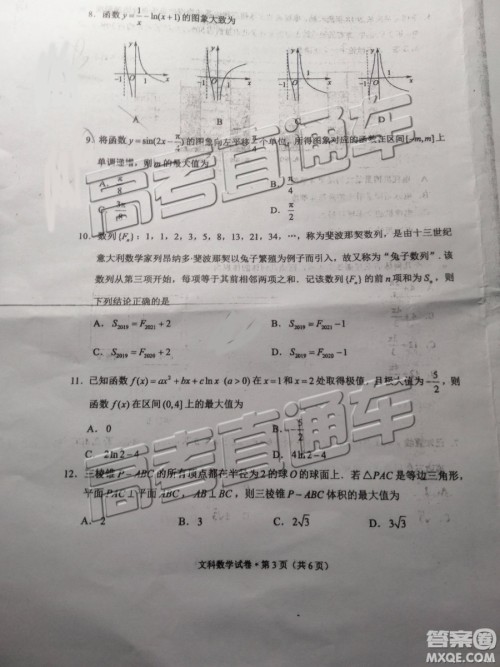 8. 函数 y=1/x−ln(x+1) 的图象大致为
A B C D
9. 将函数 y=sin(2x−π/4) 的图象向左平移π/4个单位，所得图象对应的函数在区间[-m,m]上
单调递增，则 m 的最大值为
A. π/8 B. π/4
C. 3π/8 D. π/2
10. 数列{Fₙ}：1，1，2，3，5，8，13，21，34，…，称为斐波那契数列，是由十三世纪
意大利数学家列昂纳多·斐波那契以兔子繁殖为例子而引入，故又称为“兔子数列”．该
数列从第三项开始，每项等于其前相邻两项之和．记该数列{Fₙ}的前 n 项和为 Sₙ，则
下列结论正确的是
A. S₂₀₁₉ = F₂₀₂₁ + 2 B. S₂₀₁₉ = F₂₀₂₁ −1
C. S₂₀₁₉ = F₂₀₂₀ + 2 D. S₂₀₁₉ = F₂₀₂₀ −1
11. 已知函数 f(x)=ax²+bx+c ln x (a>0) 在 x=1 和 x=2 处取得极值，且极大值为 −5/2，则
函数 f(x) 在区间(0,4]上的最大值为
A. 0 B. −5/2
C. 2ln2−4 D. 4ln2−4
12. 三棱锥 P−ABC 的所有顶点都在半径为 2 的球 O 的球面上．若△PAC 是等边三角形，
平面 PAC⊥平面 ABC，AB⊥BC，则三棱锥 P−ABC 体积的最大值为
A. 2 B. 3 C. 2√3 D. 3√3
文科数学试卷·第3页（共6页）
高考直通车
高考直通车
答案圈
MXQE.COM